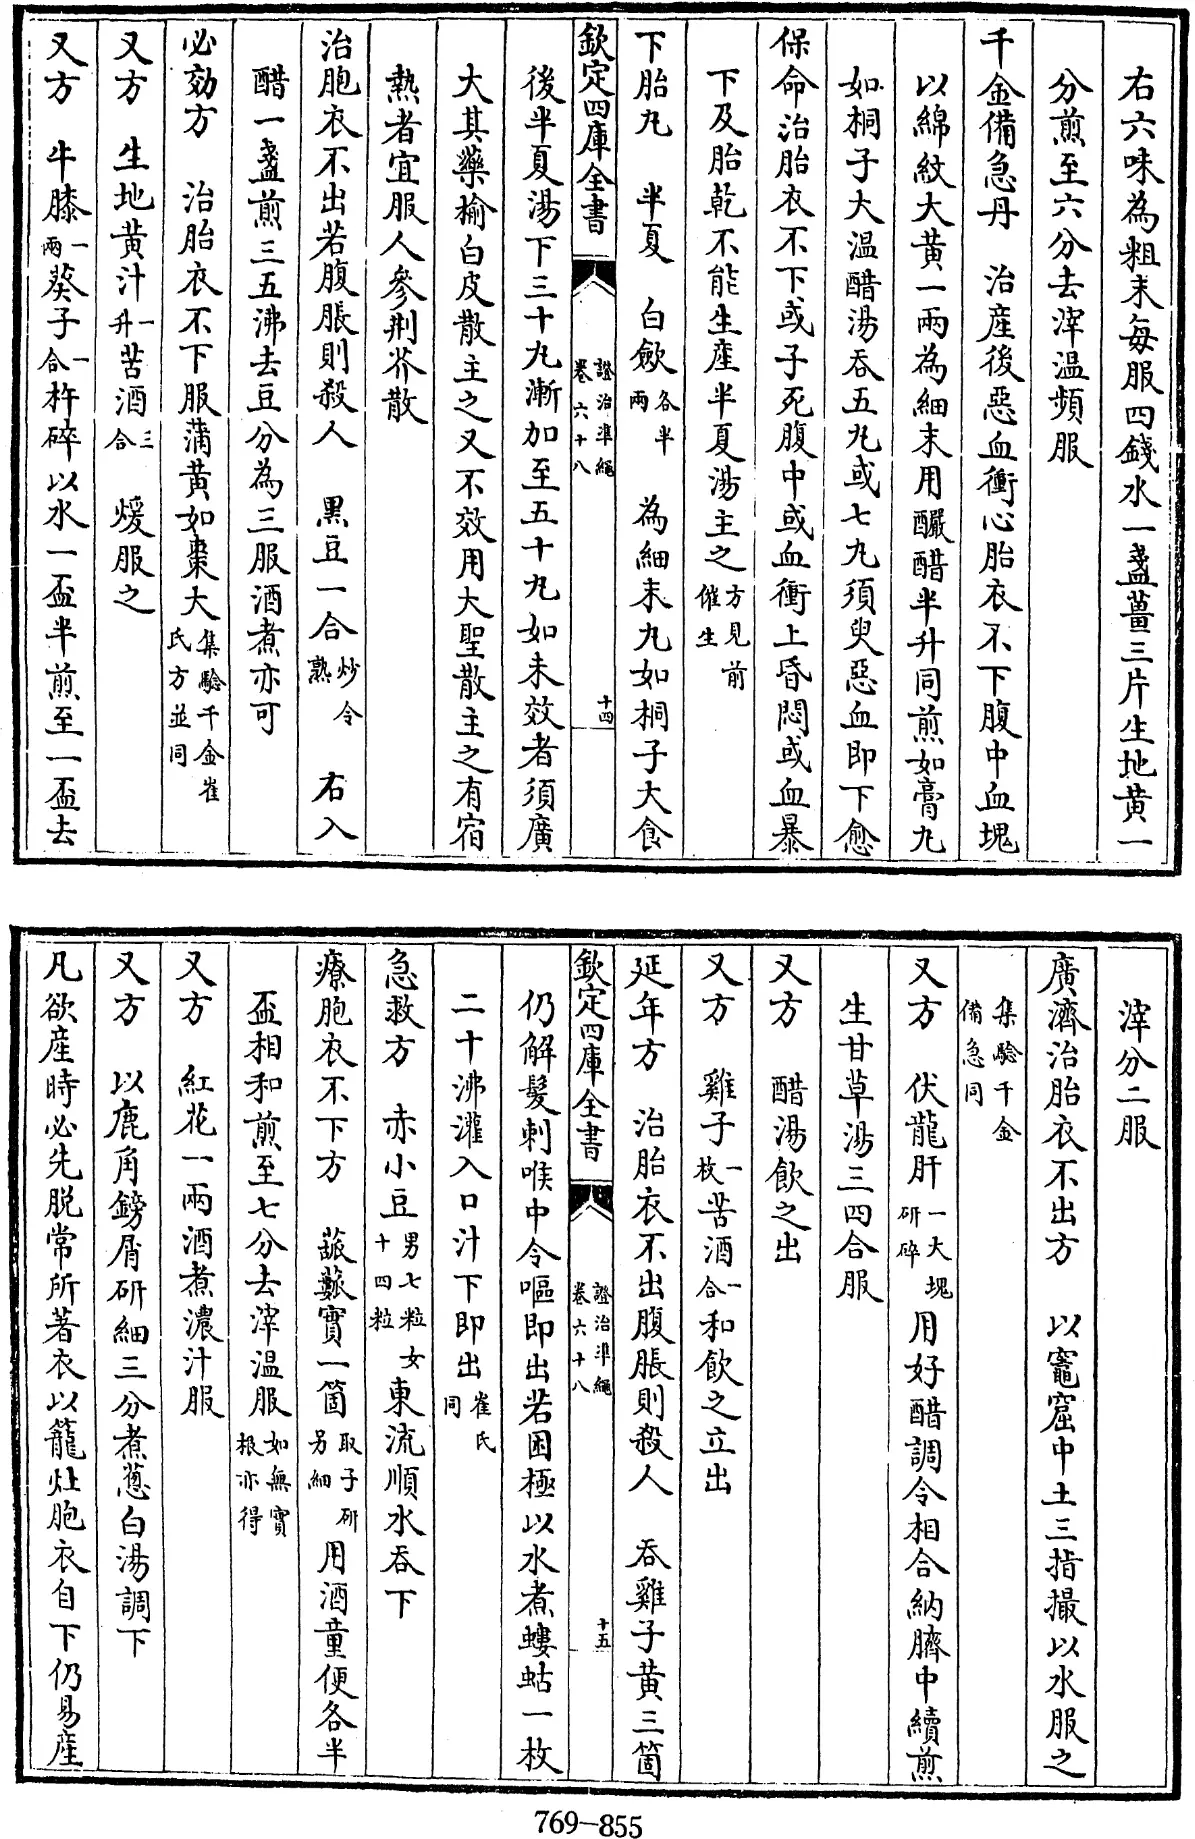 右六味為粗末每服四錢水一盞薑三片生地黄一
分煎至六分去滓温頻服
千金備急丹　治産後惡血衝心胎衣不下腹中血塊
以綿紋大黄一兩為細末用釅醋半升同煎如膏丸
如桐子大温醋湯吞五丸或七丸須臾惡血即下愈
保命治胎衣不下或子死腹中或血衝上昏悶或血暴
下及胎乾不能生産半夏湯主之方見前催生
下胎丸　半夏　白歛各半兩　為細末丸如桐子大食
欽定四庫全書　證治準繩卷六十八　十四
後半夏湯下三十丸漸加至五十丸如未效者須廣
大其藥榆白皮散主之又不效用大聖散主之有宿
熱者宜服人參荆芥散
治胞衣不出若腹脹則殺人　黑豆一合炒令熟　右入
醋一盞煎三五沸去豆分為三服酒煮亦可
必効方　治胎衣不下服蒲黄如棗大集驗千金崔氏方並同
又方　生地黄汁一升苦酒三合　煖服之
又方　牛膝一兩葵子一合杵碎以水一盃半煎至一盃去
滓分二服
廣濟治胎衣不出方　以竈窟中土三指撮以水服之
集驗千金備急同
又方　伏龍肝一大塊研碎用好醋調令相合納臍中續煎
生甘草湯三四合服
又方　醋湯飲之出
又方　雞子一枚苦酒一合和飲之立出
延年方　治胎衣不出腹脹則殺人　吞雞子黄三箇
欽定四庫全書　證治準繩卷六十八　十五
仍解髮刺喉中令嘔即出若困極以水煮螻蛄一枚
二十沸灌入口汁下即出崔氏同
急救方　赤小豆男七粒女十四粒東流順水吞下
療胞衣不下方　蓏蔬實一箇取子研另細　用酒童便各半
盃相和煎至七分去滓温服如無實根亦得
又方　紅花一兩酒煮濃汁服
又方　以鹿角鎊屑研細三分煮葱白湯調下
凡欲産時必先脱常所著衣以籠灶胞衣自下仍易産
769-855